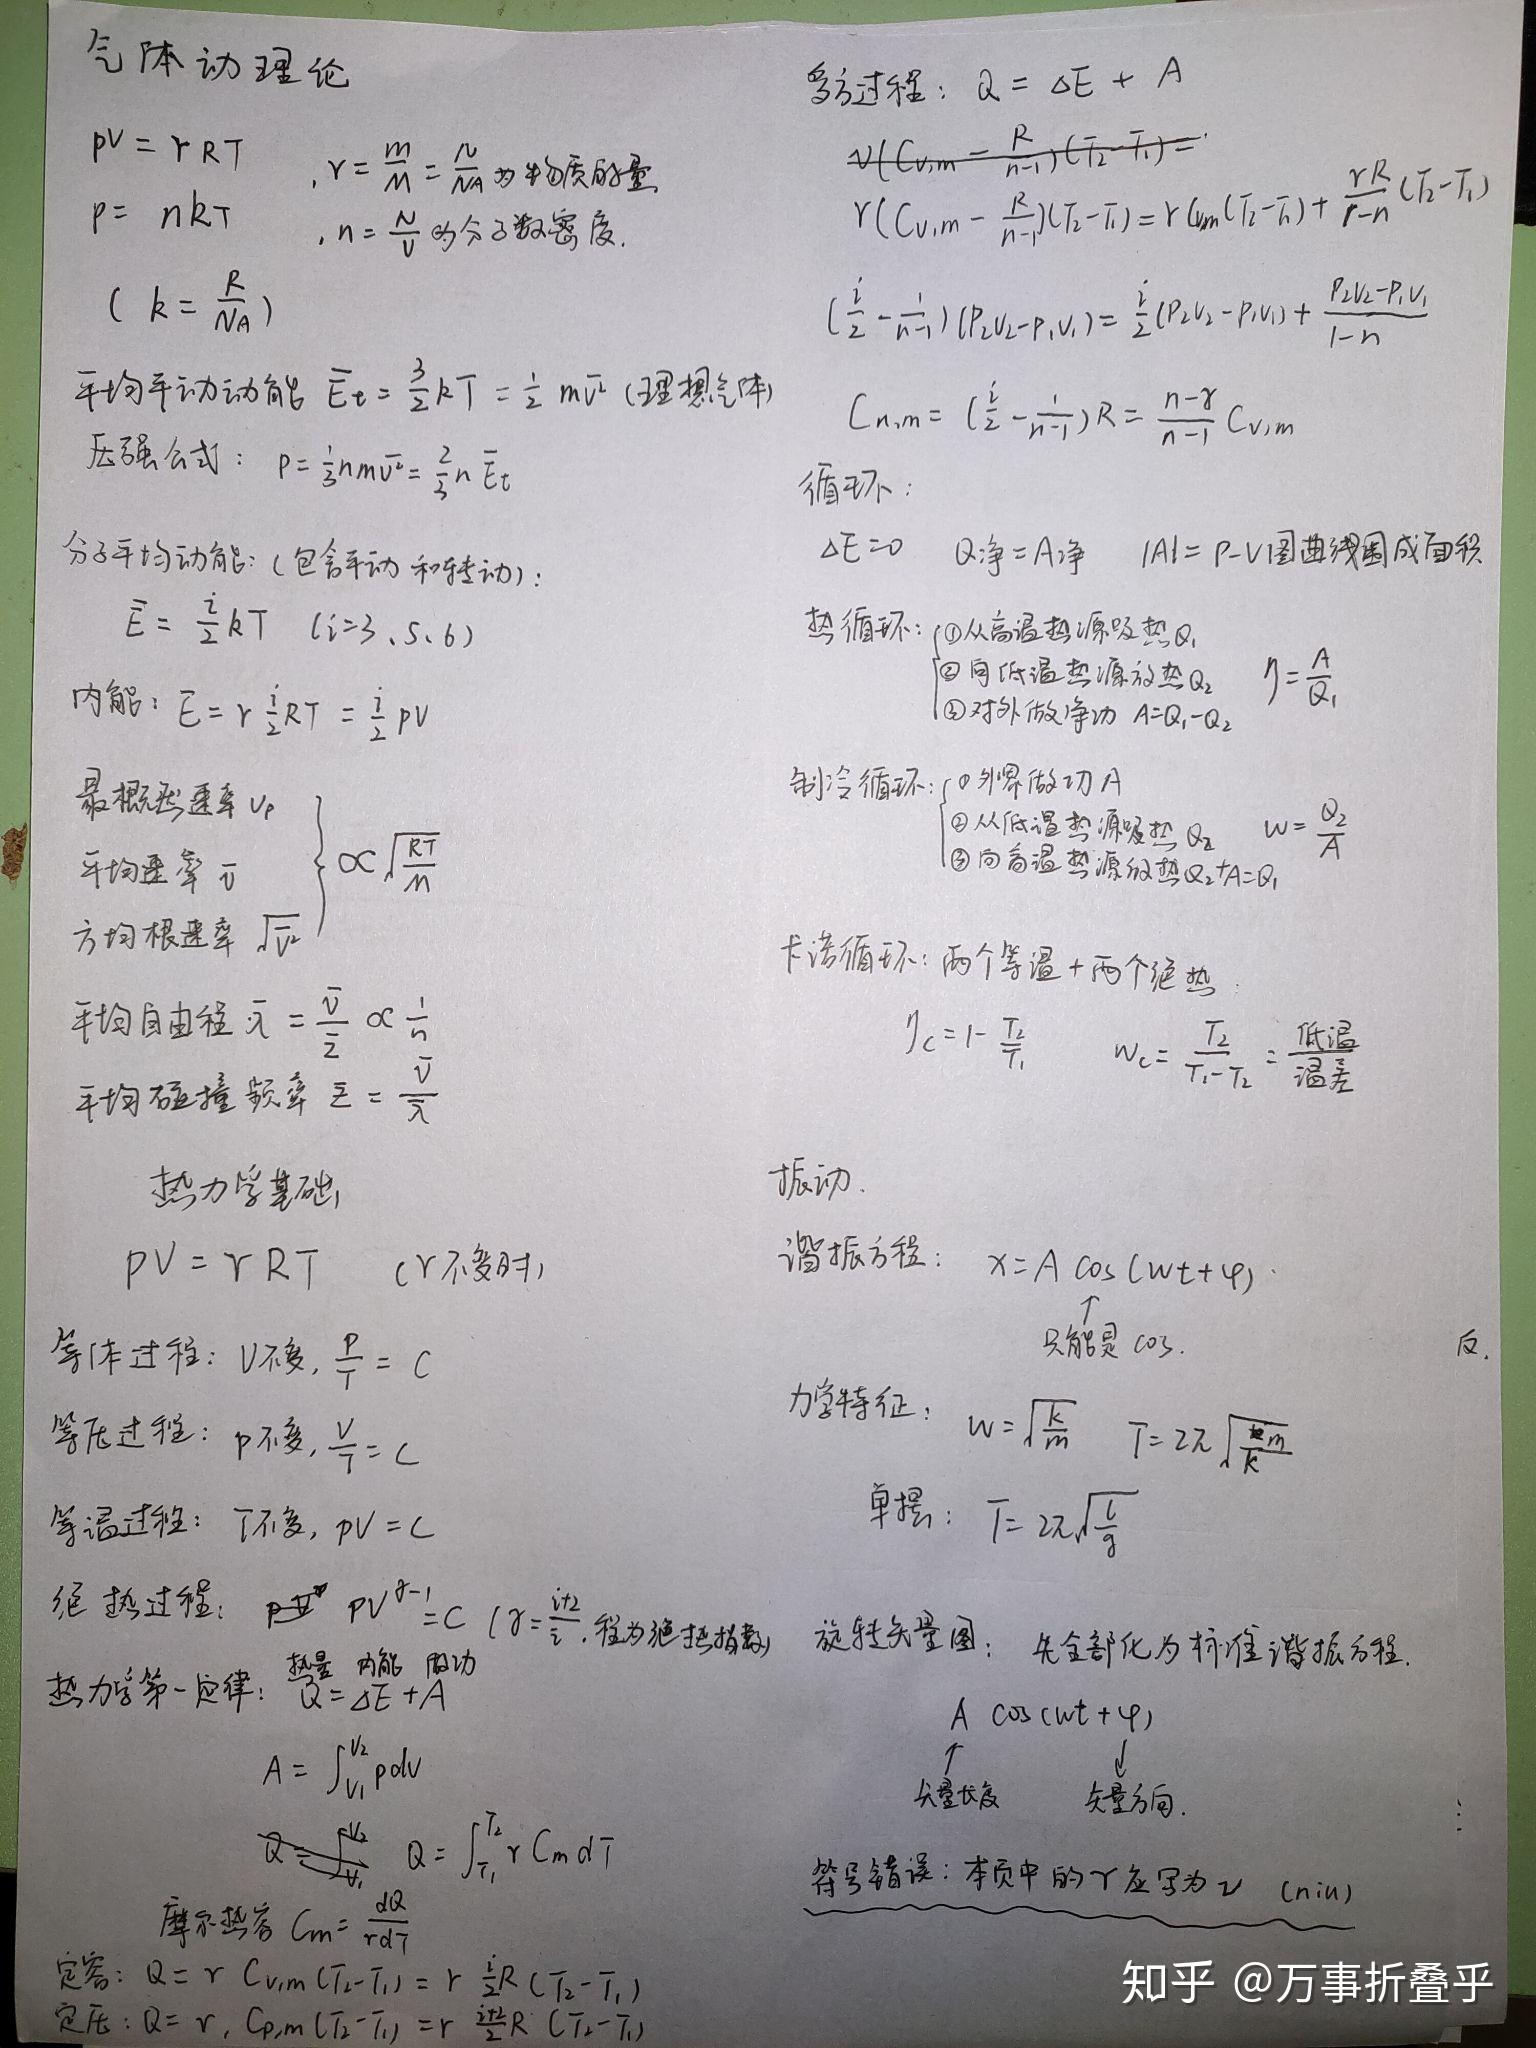 气体动理论
pV = rRT
, r = m/M = N/NA 为物质的量
p = nkT
, n = N/V 为分子数密度.
( k = R/NA )
平均平动动能 Ēt = 3/2 kT = 1/2 mv̄² (理想气体)
压强公式: p = 1/3 nmv̄² = 2/3 n Ēt
分子平均动能: (包含平动和转动):
Ē = i/2 kT (i=3、5、6)
内能: E = r i/2 RT = i/2 pV
最概然速率 vp
平均速率 v̄
方均根速率 √v̄²
∝ √(RT/M)
平均自由程 λ̄ = v̄/z̄ ∝ 1/n
平均碰撞频率 z̄ = v̄/λ̄
热力学基础
pV = rRT (r不变时)
等体过程: V不变, p/T = C
等压过程: p不变, V/T = C
等温过程: T不变, pV = C
绝热过程: pV^γ-1 = C (γ = i+2/i, 称为绝热指数)
热量 内能 做功
热力学第一定律: Q = ΔE + A
A = ∫V1V2 pdV
Q = ∫V1V2 Q = ∫T1T2 r Cm dT
摩尔热容 Cm = dQ/rdT
定容: Q = r Cv,m (T2-T1) = r i/2 R (T2-T1)
定压: Q = r, Cp,m (T2-T1) = r i+2/2 R (T2-T1)
多方过程: Q = ΔE + A
ν(Cv,m - R/n-1)(T2-T1) =
r(Cv,m - R/n-1)(T2-T1) = rCv,m(T2-T1) + rR/1-n (T2-T1)
(i/2 - 1/n-1)(P2V2-P1V1) = i/2 (P2V2-P1V1) + P2V2-P1V1/1-n
Cn,m = (i/2 - 1/n-1)R = n-γ/n-1 Cv,m
循环:
ΔE=0 Q净=A净 |A|= P-V图曲线围成面积
热循环: ①从高温热源吸热Q1
②向低温热源放热Q2 η = A/Q1
③对外做净功 A=Q1-Q2
制冷循环: ①外界做功A
②从低温热源吸热Q2 w = Q2/A
③向高温热源放热Q2+A=Q1
卡诺循环: 两个等温+两个绝热.
ηc = 1- T2/T1 wc = T2/T1-T2 = 低温/温差
振动.
谐振方程: x = A cos(wt+φ).
↑
只能是cos.
反.
力学特征: w = √(k/m) T = 2π√(m/k)
单摆: T = 2π√(l/g)
旋转矢量图: 先全部化为标准谐振方程.
A cos(wt+φ)
↑ ↓
矢量长度 矢量方向.
符号错误: 本页中的r应写为ν (niu)
知乎 @万事折叠乎